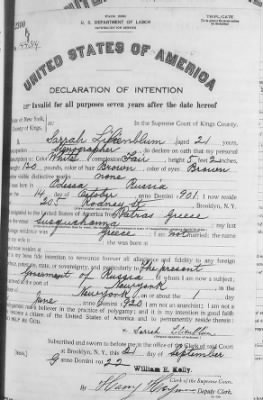 TRIPLICATE
U. S. DEPARTMENT OF LABOR
NATURALIZATION SERVICE
UNITED STATES OF AMERICA
DECLARATION OF INTENTION
Invalid for all purposes seven years after the date hereof
State of New York,
County of Kings,
In the Supreme Court of Kings County.
I, Sarah Liltenblum, aged 21 years,
occupation Stenographer, do declare on oath that my personal
description is: Color White, complexion Fair, height 5 feet 2 inches,
weight 120 pounds, color of hair Brown, color of eyes Brown
other visible distinctive marks none
I was born in Odessa Russia
on the 14 day of October, anno Domini 901; I now reside
at 205 Rodney St, Brooklyn, N.Y.
I emigrated to the United States of America from Patras Greece
on the vessel; my last
foreign residence was Greece; I am not married; the name
she was born at
It is my bona fide intention to renounce forever all allegiance and fidelity to any foreign
prince, potentate, state, or sovereignty, and particularly to The present
Government of Russia, of whom I am now a subject;
I arrived at the port of New york, in the
State of New york, on or about the 1 day
of June, anno Domini 1920; I am not an anarchist; I am not a
polygamist nor a believer in the practice of polygamy; and it is my intention in good faith
to become a citizen of the United States of America and to permanently reside therein:
SO HELP ME GOD.
Sarah
Subscribed and sworn to before me in the office of the Clerk of said Court
at Brooklyn, N.Y., this 21 day of September
anno Domini 1922
William E. Kelly.
Clerk of the Supreme Court.
By Harry
Deputy Clerk.